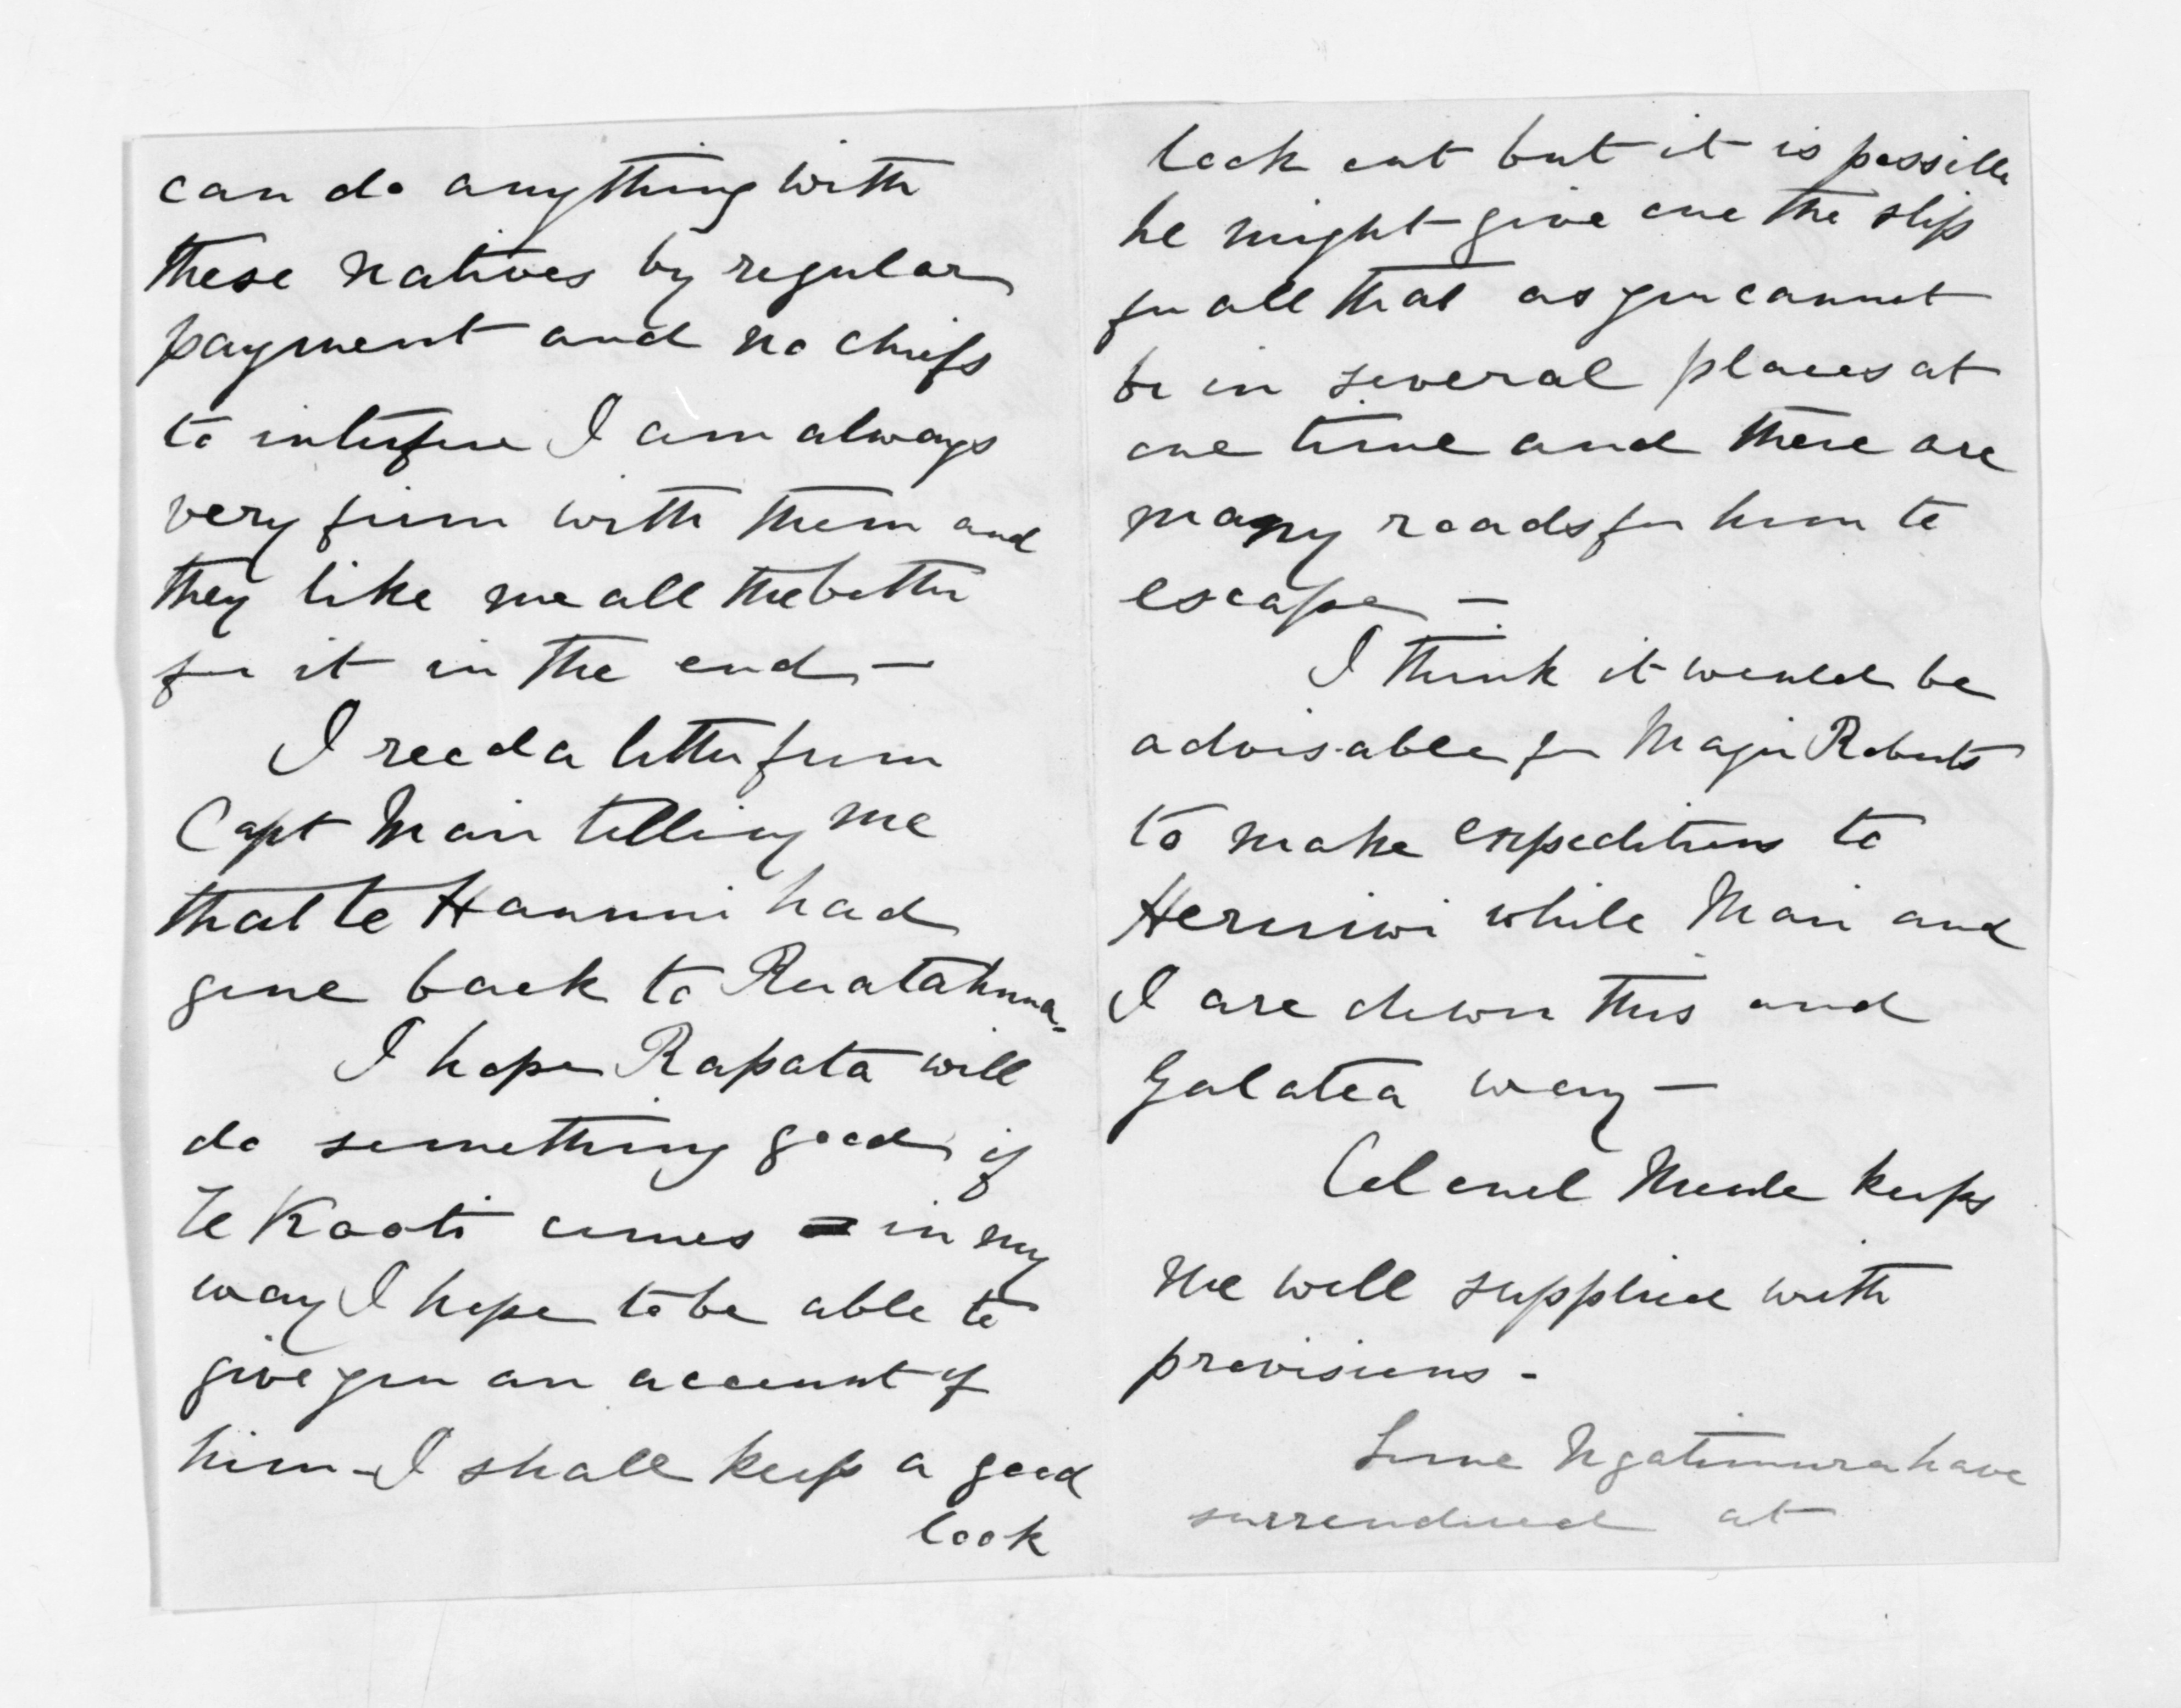 can do anything with
these natives by regular
payment and no chiefs
to interfere I am always
very firm with them and
they like me all the better
for it in the end —
I recd a letter from
Capt Mair telling me
that te Haunui had
gone back to Ruatahuna -
I hope Rapata will
do something good if
Te Kooti comes in my
way I hope to be able to
give you an account of
him - I shall keep a good
look
look out but it is possible
he might give one the slip
for all that as you cannot
be in several places at
one time and there are
many roads for him to
escape —
I think it would be
advisable for Major Roberts
to make expeditions to
Heruiwi while Mair and
I are down this and
Galatea way —
Colonel Moule keeps
me well supplied with
provisions -
Some Ngatimura have
surrendered at